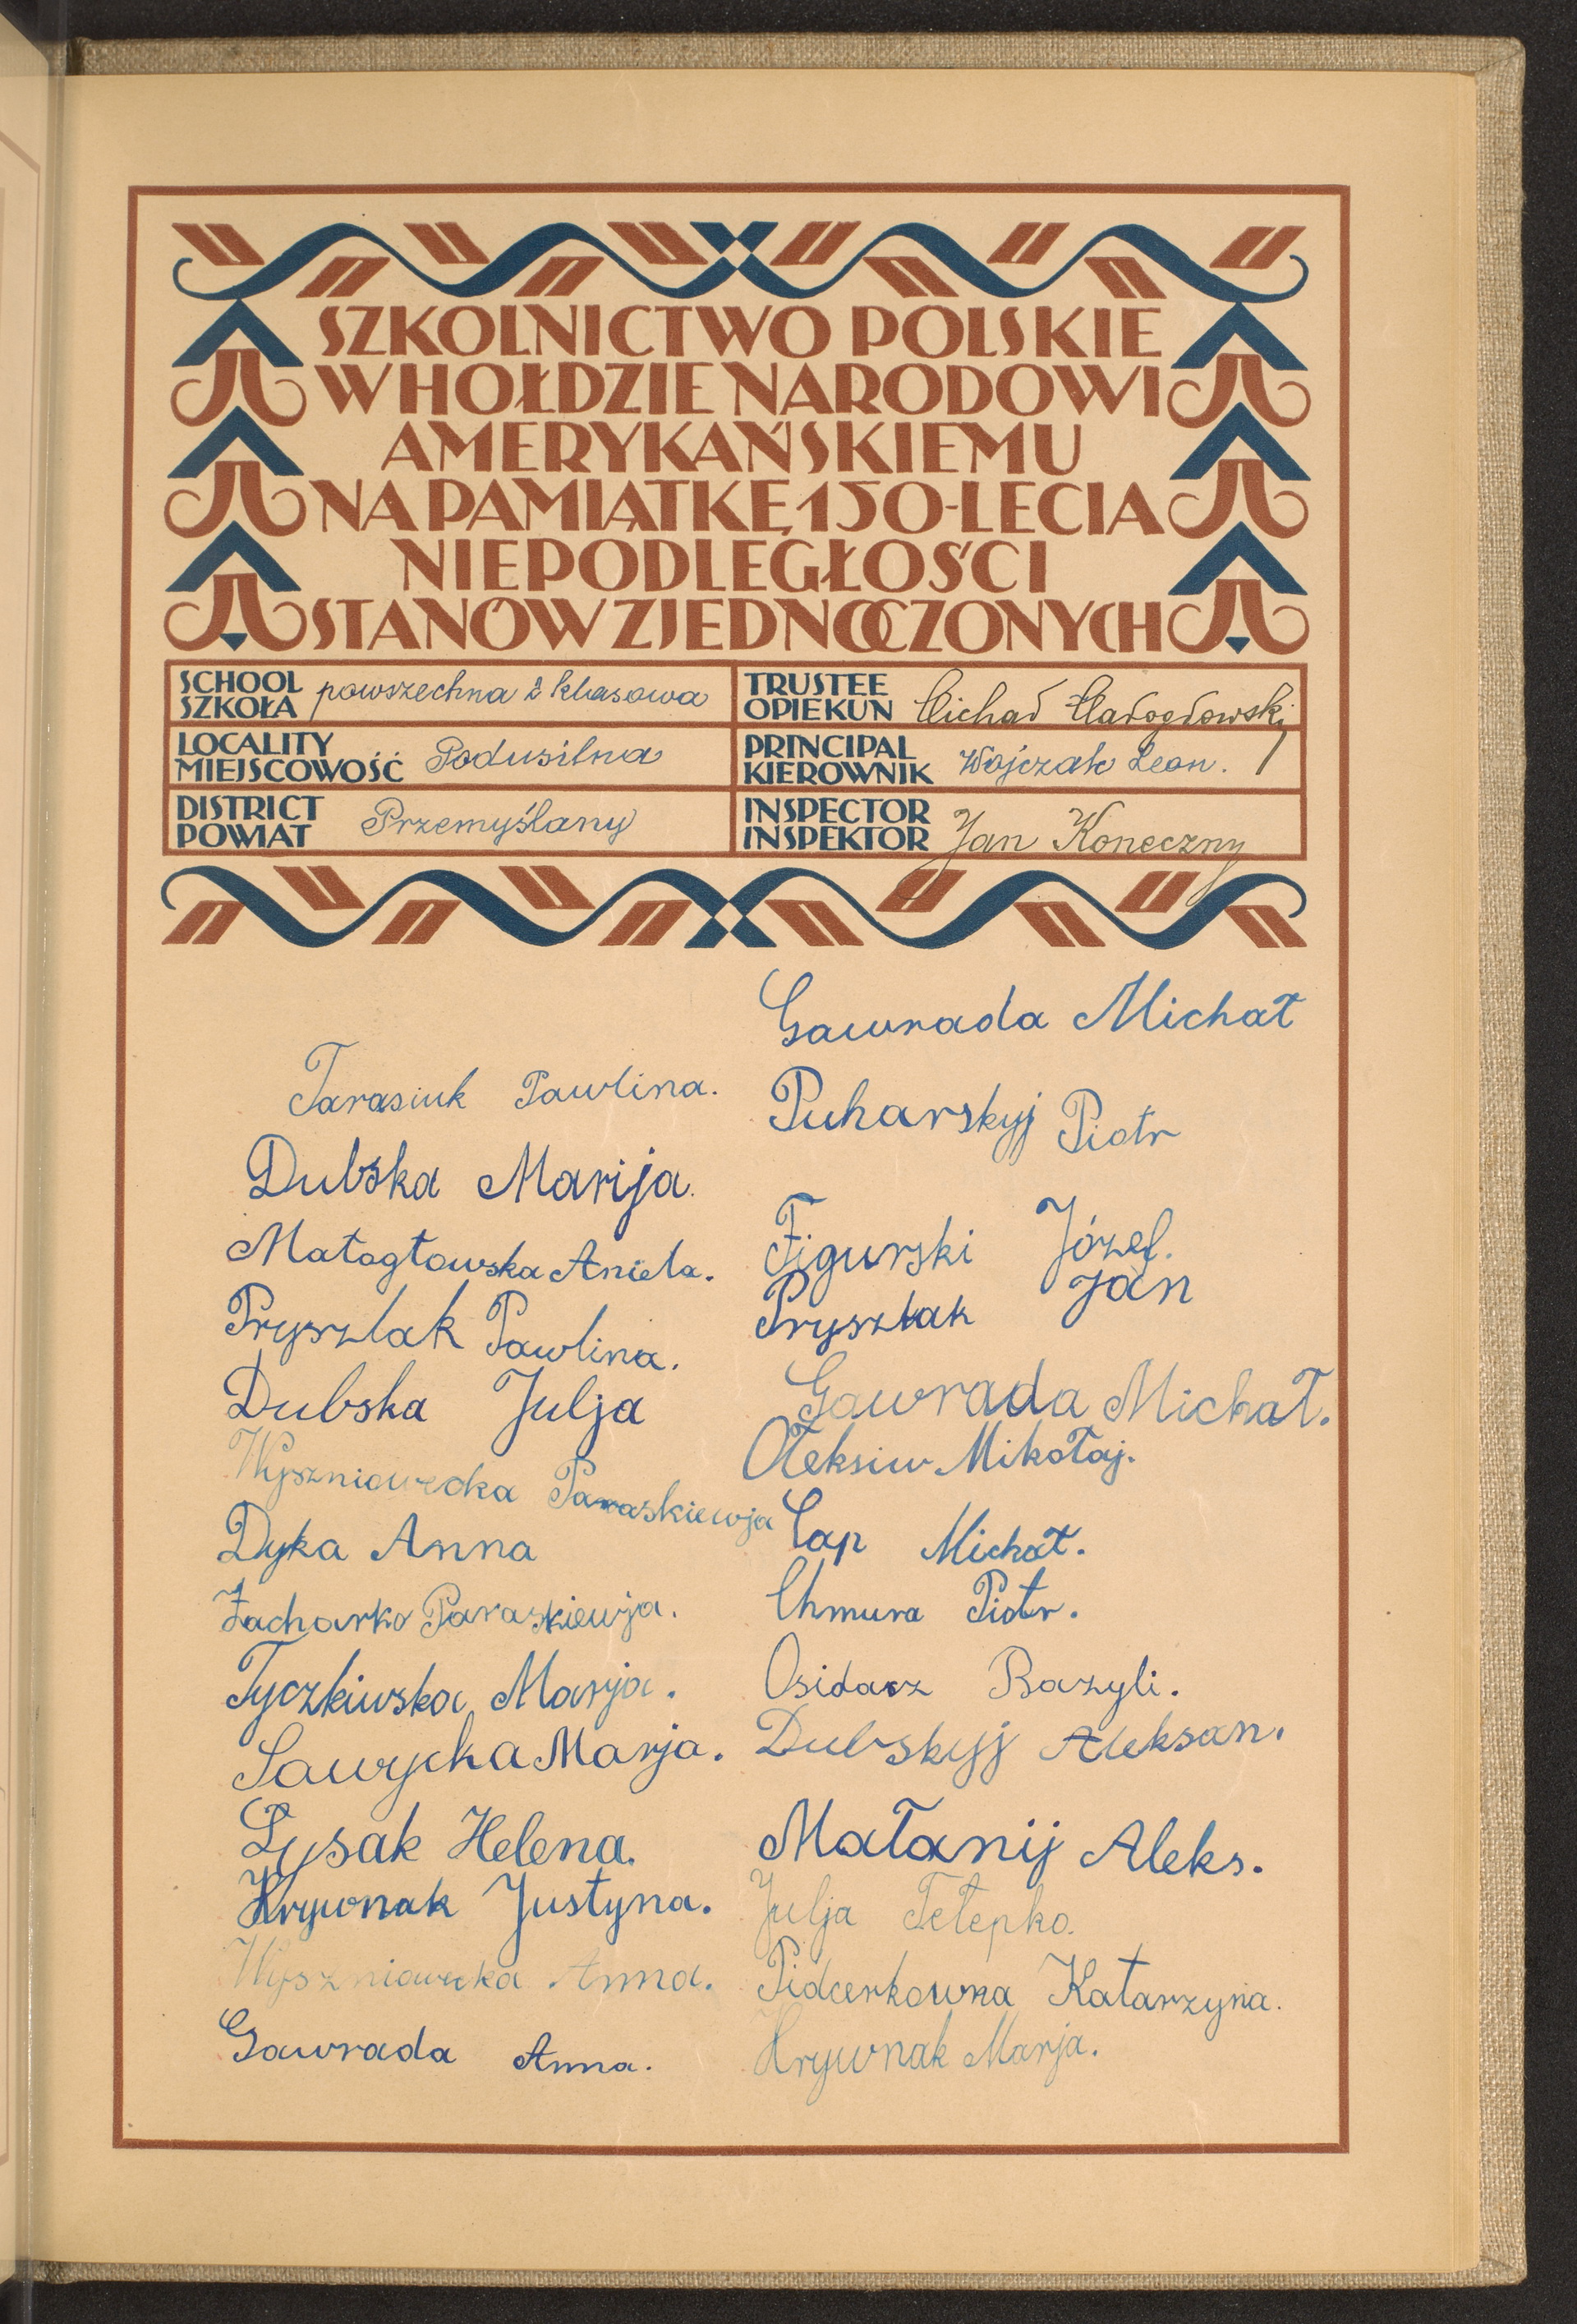 SZKOLNICTWO POLSKIE
W HOŁDZIE NARODOWI
AMERYKAŃSKIEMU
NA PAMIĄTKĘ 150-LECIA
NIEPODLEGŁOŚCI
STANÓW ZJEDNOCZONYCH
SCHOOL
SZKOŁA powszechna 2 klasowa
LOCALITY
MIEJSCOWOŚĆ Podusilna
DISTRICT
POWIAT Przemyślany
TRUSTEE
OPIEKUN
PRINCIPAL
KIEROWNIK Wojczak Leon.
INSPECTOR
INSPEKTOR Jan Koneczny
Tarasiuk Pawlina.
Dubska Marija.
Małogłowska Aniela.
Pryszlak Pawlina.
Dubska Julja
Wyszniowecka Paraskiewja
Dyka Anna
Zacharko Paraskiewja.
Tyczkiwska Marja.
Sawycka Marja.
Łysak Helena.
Hrywnak Justyna.
Wyszniowecka Anna.
Gawrada Anna.
Gawrada Michał
Puharskyj Piotr
Figurski Józef.
Pryszlak Jan
Gawrada Michał.
Ołeksiw Mikołaj.
Cap Michał.
Chmura Piotr.
Osidacz Bazyli.
Dubskyj Aleksan.
Małanij Aleks.
Julja Telepko.
Pidcerkowna Katarzyna.
Hrywnak Marja.